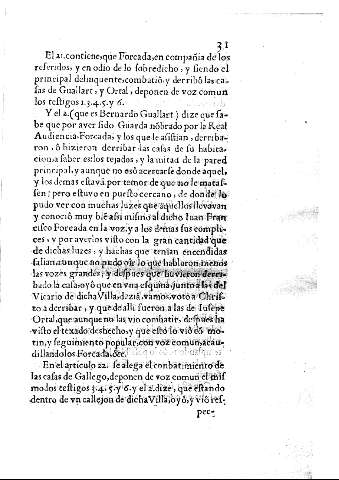 31
El 21. contiene, que Forcada, en compañia de los
referidos, y en odio de lo sobredicho, y siendo el
principal delinquente, combatiò, y derribò las ca-
sas de Guallart, y Ortal, deponen de voz comun
los testigos 1.3.4.5. y 6.
Y el 2. (que es Bernardo Guallart) dize que sa-
be que por aver sido Guarda nõbrado por le Real
Audiencia Forcada, y los que le assistian, derriba-
ron, ò hizieron derribar las casas de su habita-
cion, a saber es los tejados, y la mitad de la pared
principal, y aunque no osò acercarse donde aquel,
y los demas estavã por temor de que no le matas-
sen; pero estuvo en puesto cercano, de donde lo
pudo ver con muchas luzes que aquellos llevavan
y conociò muy biẽ assi mismo al dicho Iuan Fran
cisco Forcada en la voz, y a los demas sus compli-
ces, y por averlos visto con la gran cantidad que
de dichas luzes, y hachas que tenian encendidas
salian, aunque no pudo oìr lo que hablaron menos
las vozes grandes, y despues que huvieron derri-
bado la casa, oyò que en vna esquina junto a la del
Vicario de dicha Villa, dezia, vamos, voto a Chris-
to a derribar, y que de alli fueron a las de Iusepe
Ortal, que aunque no las viò combatir, despues ha
visto el texado deshecho, y que esto lo viò es mo-
tin, y seguimiento popular, con voz comun, acau-
dillandolos Forcada, &c.
En el articulo 22. se alega el combatimiento de
las casas de Gallego, deponen de voz comun el mis
mo los testigos 3.4.5. y 6. y el 2. dize, que estando
dentro de vn callejon de dicha Villa, oyò, y viò res-
pec-